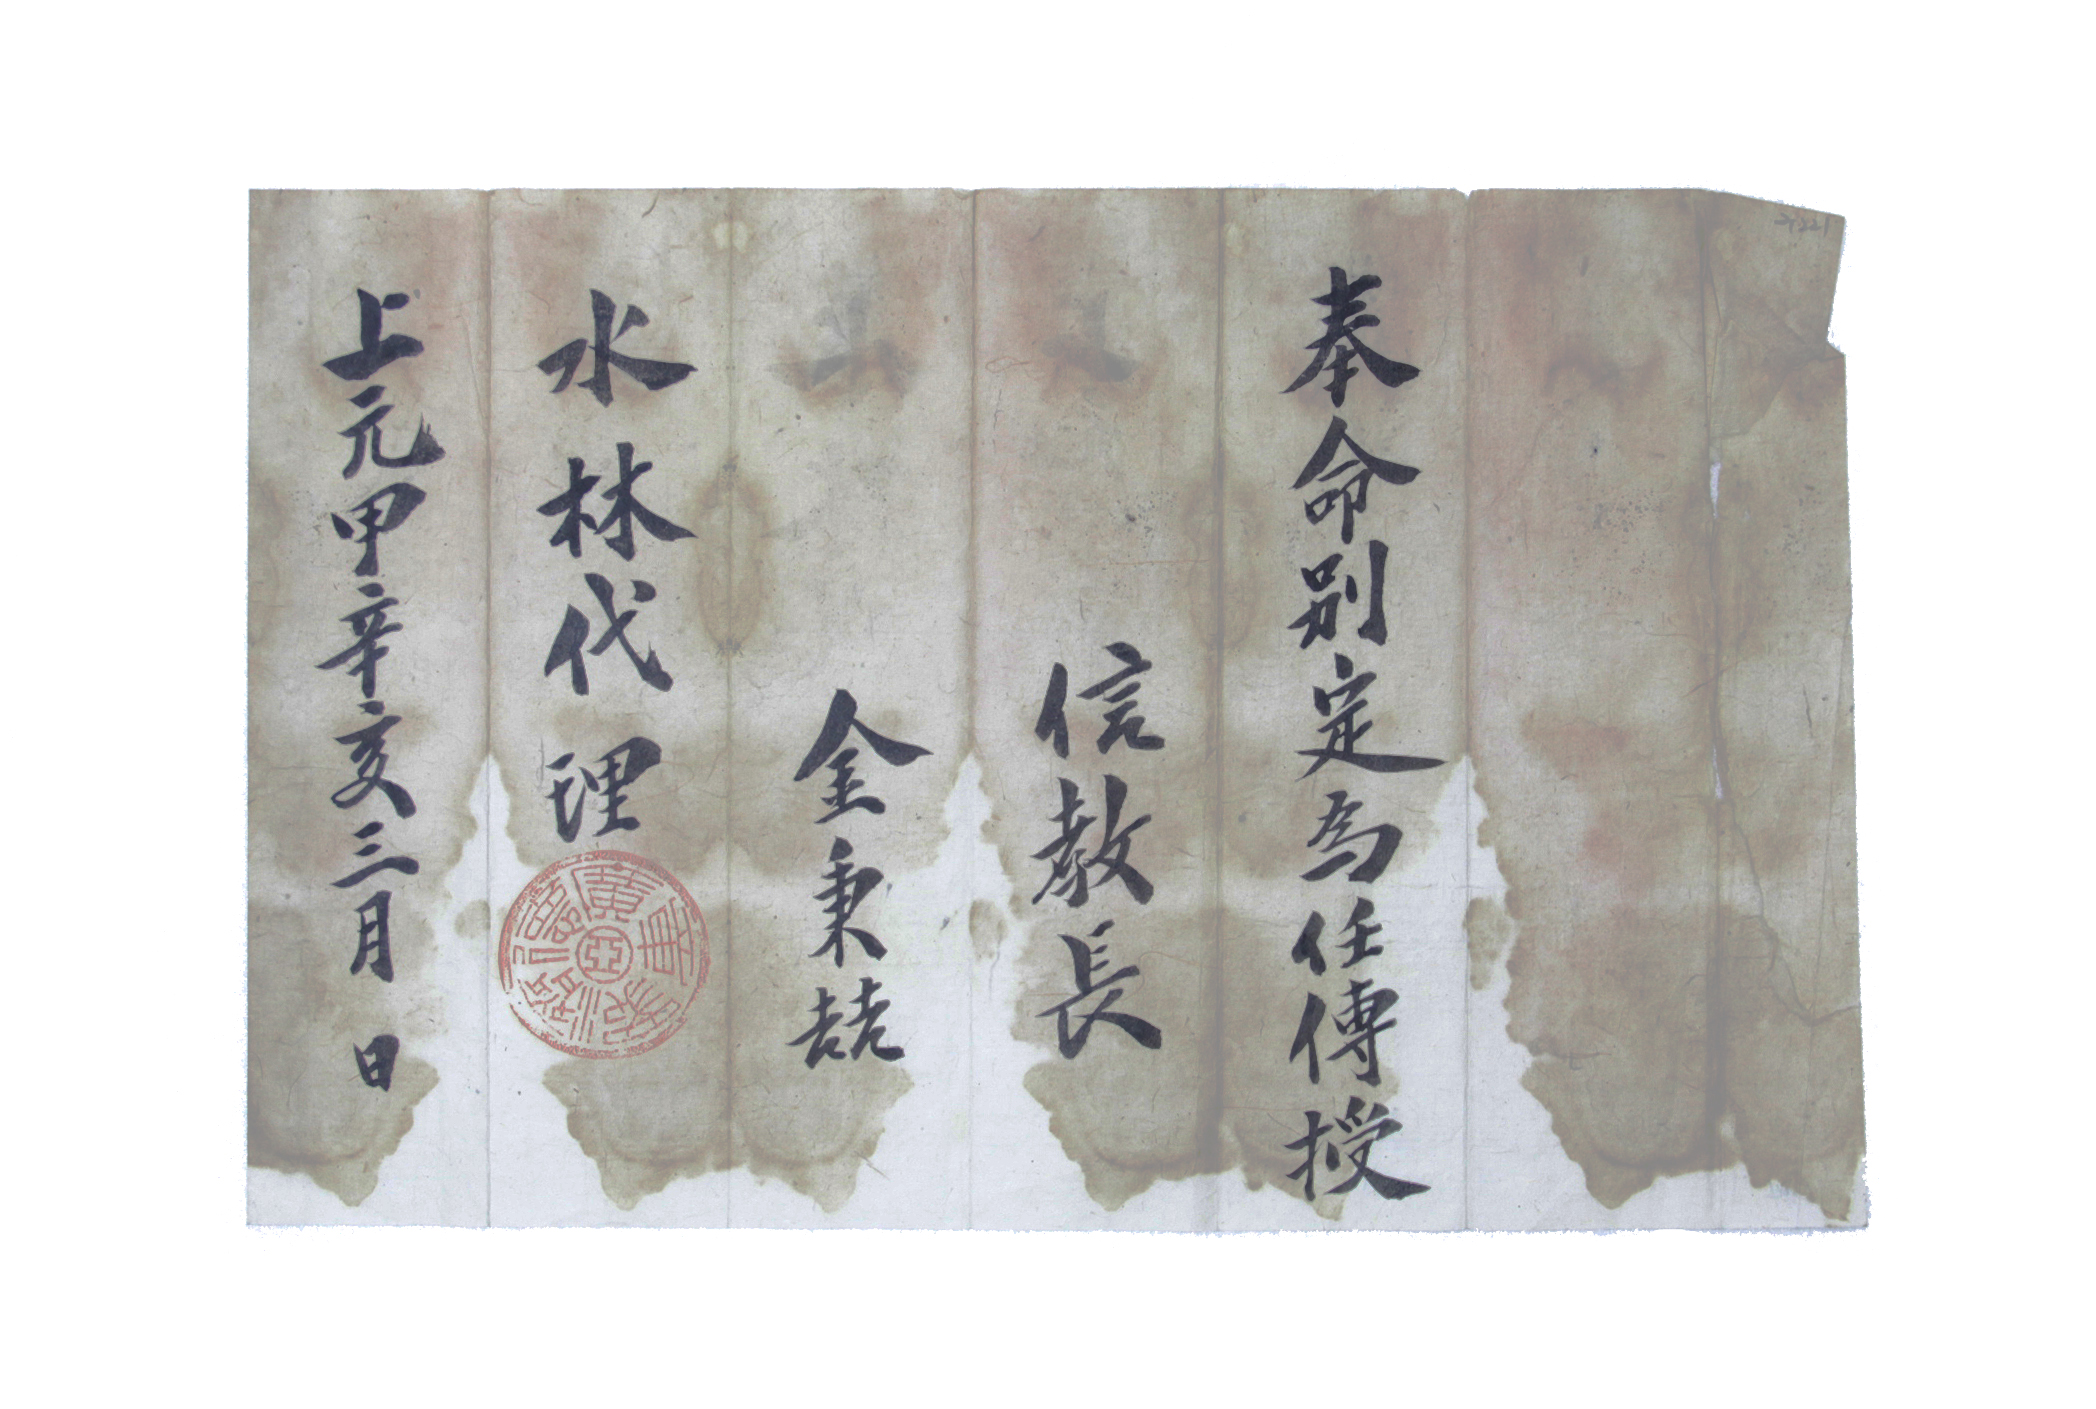 奉命別定為任傳授
信教長
金秉喆
水林代理
上元甲辛亥三月 日